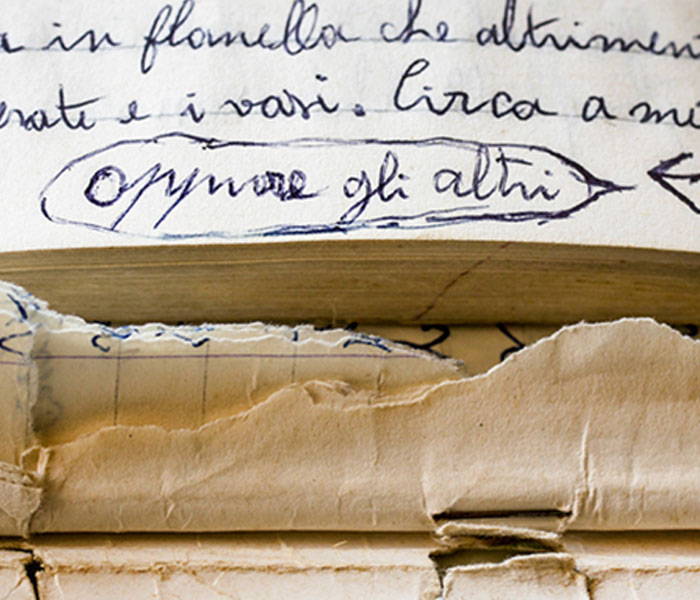 in flanella che altrimen
erate e i vasi. Circa a me
oppure gli altri